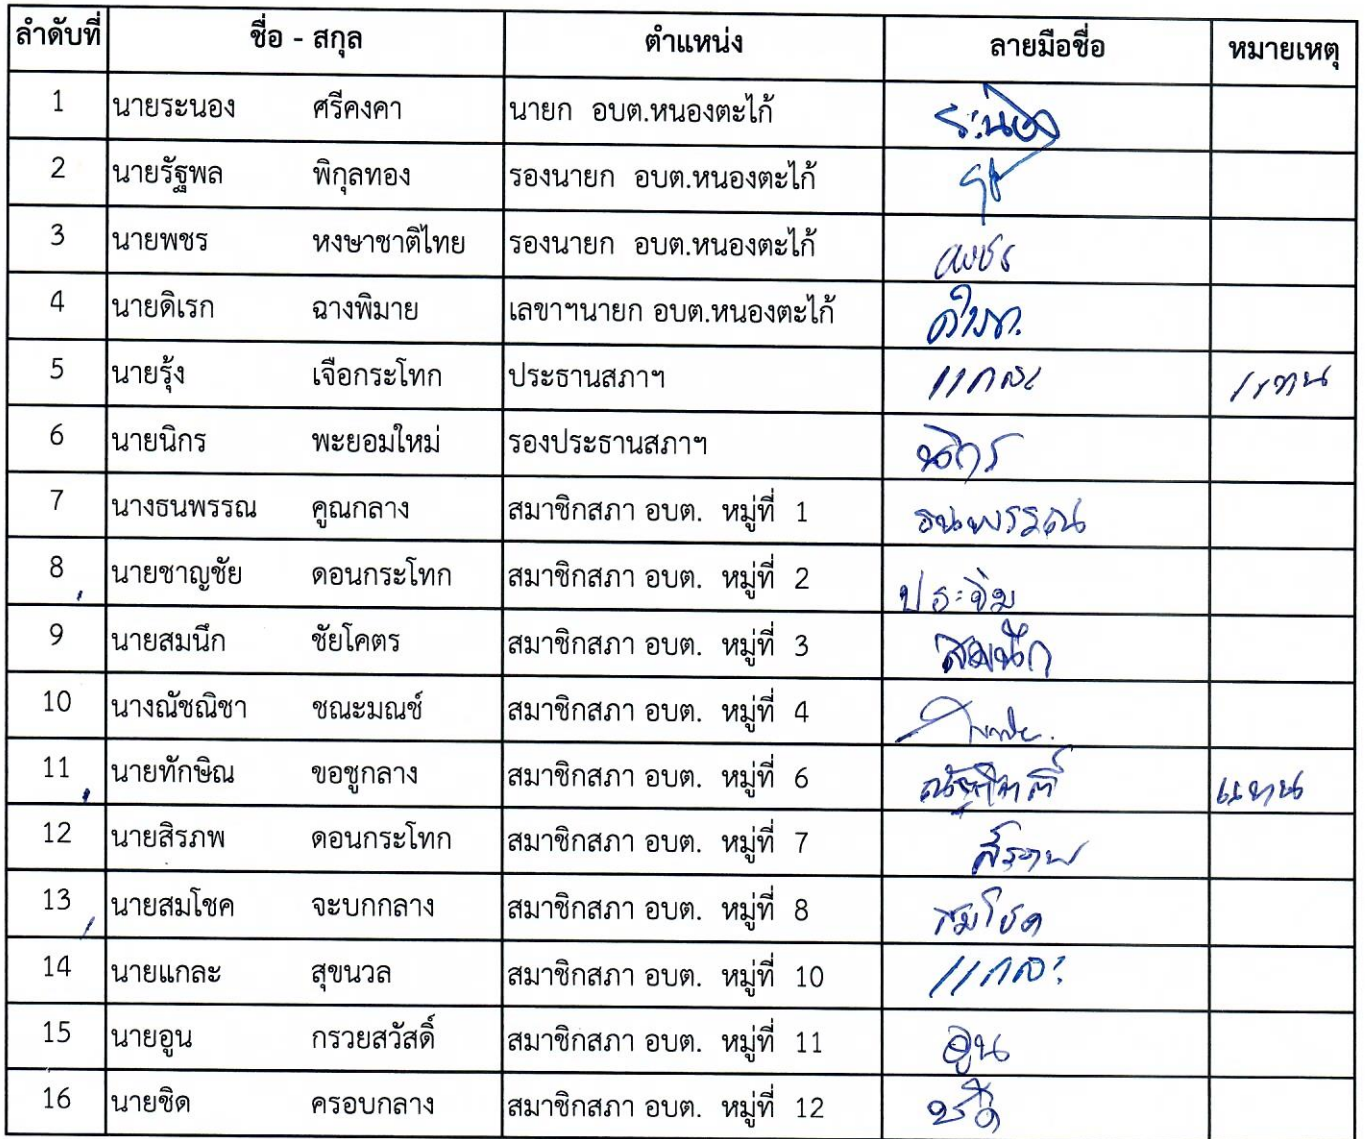 ลำดับที่ ชื่อ - สกุล ตำแหน่ง ลายมือชื่อ หมายเหตุ
1 นายระนอง ศรีคงคา นายก อบต.หนองตะไก้ ระนอง
2 นายรัฐพล พิกุลทอง รองนายก อบต.หนองตะไก้
3 นายพชร หงษาชาติไทย รองนายก อบต.หนองตะไก้ พชร
4 นายดิเรก ฉางพิมาย เลขาฯนายก อบต.หนองตะไก้
5 นายรุ้ง เจือกระโทก ประธานสภาฯ แกละ แทน
6 นายนิกร พะยอมใหม่ รองประธานสภาฯ นิกร
7 นางธนพรรณ คูณกลาง สมาชิกสภา อบต. หมู่ที่ 1 ธนพรรณ
8 นายชาญชัย ดอนกระโทก สมาชิกสภา อบต. หมู่ที่ 2
9 นายสมนึก ชัยโคตร สมาชิกสภา อบต. หมู่ที่ 3 สมนึก
10 นางณัชณิชา ชณะมณช์ สมาชิกสภา อบต. หมู่ที่ 4
11 นายทักษิณ ขอชูกลาง สมาชิกสภา อบต. หมู่ที่ 6 แทน
12 นายสิรภพ ดอนกระโทก สมาชิกสภา อบต. หมู่ที่ 7 สิรภพ
13 นายสมโชค จะบกกลาง สมาชิกสภา อบต. หมู่ที่ 8 สมโชค
14 นายแกละ สุขนวล สมาชิกสภา อบต. หมู่ที่ 10 แกละ
15 นายอูน กรวยสวัสดิ์ สมาชิกสภา อบต. หมู่ที่ 11 อูน
16 นายชิด ครอบกลาง สมาชิกสภา อบต. หมู่ที่ 12 ชิด